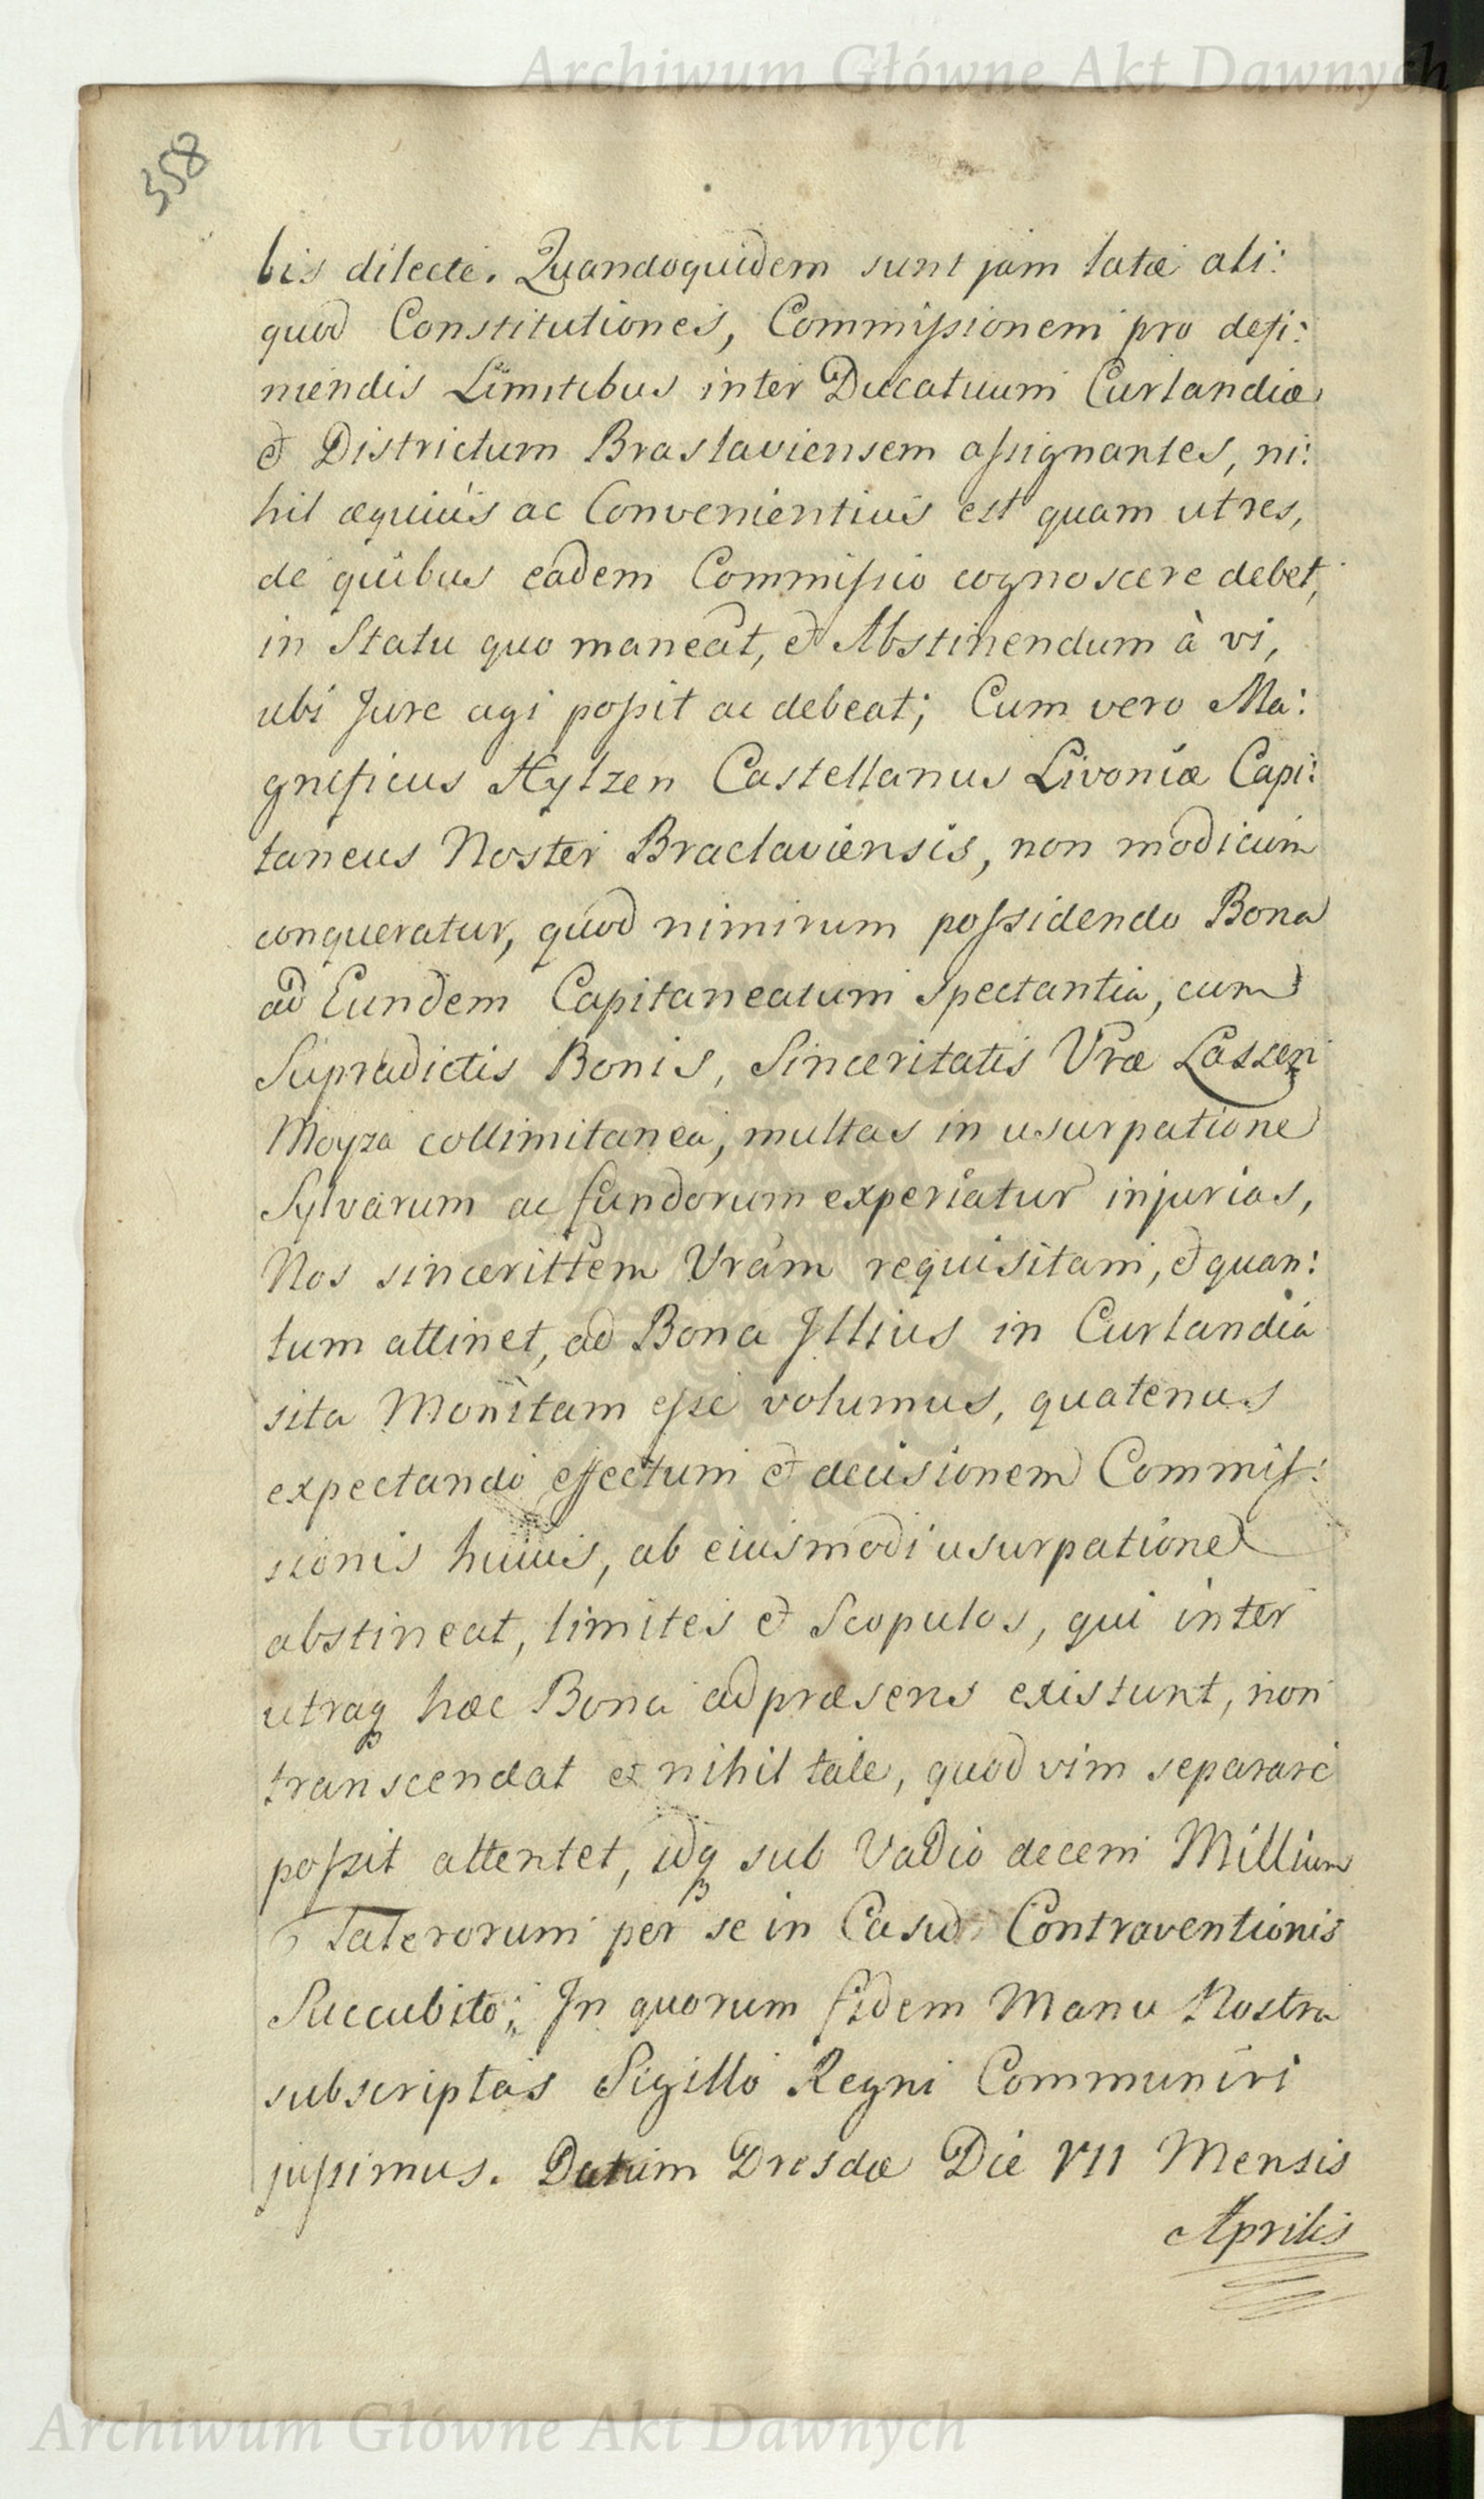 Archiwum Główne Akt Dawnych
358
bis dilecte. Quandoquidem sunt jam latæ ali:
quod Constitutiones, Commissionem pro defi:
niendis Limitibus inter Ducatuum Curlandiæ
et Districtum Braslaviensem assignantes, ni:
hil æquius ac Convenientius est quam ut res,
de quibus eadem Commissio cognoscere debet,
in Statu quo maneat, et Abstinendum à vi,
ubi Jure agi possit ac debeat; Cum vero Ma:
gnificus Hylzen Castellanus Livoniæ Capi:
taneus Noster Braclaviensis, non modicum
conqueratur, quod nimirum possidendo Bona
ad Eundem Capitaneatum Spectantia, cum
Supradictis Bonis, Sinceritatis Vræ Lassen
Moyza collimitanea, multas in usurpatione
Sylvarum ac fundorum experiatur injurias,
Nos sincerittem Vram requisitam, et quan:
tum attinet, ad Bona Illius in Curlandia
sita Monitam esse volumus, quatenus
expectando effectum et decisionem Commis:
sionis huius, ab eiusmodi usurpatione
abstineat, limites et Scopulos, qui inter
utraq hæc Bona ad præsens existunt, non
transcendat et nihil tale, quod vim separare
possit attentet, idq sub Vadio decem Millium
Talerorum per se in Casu Contraventionis
Succubito; In quorum fidem Manu Nostra
subscriptas Sigillo Regni Communiri
jussimus. Datum Dresdæ Die VII Mensis
Aprilis
Archiwum Główne Akt Dawnych